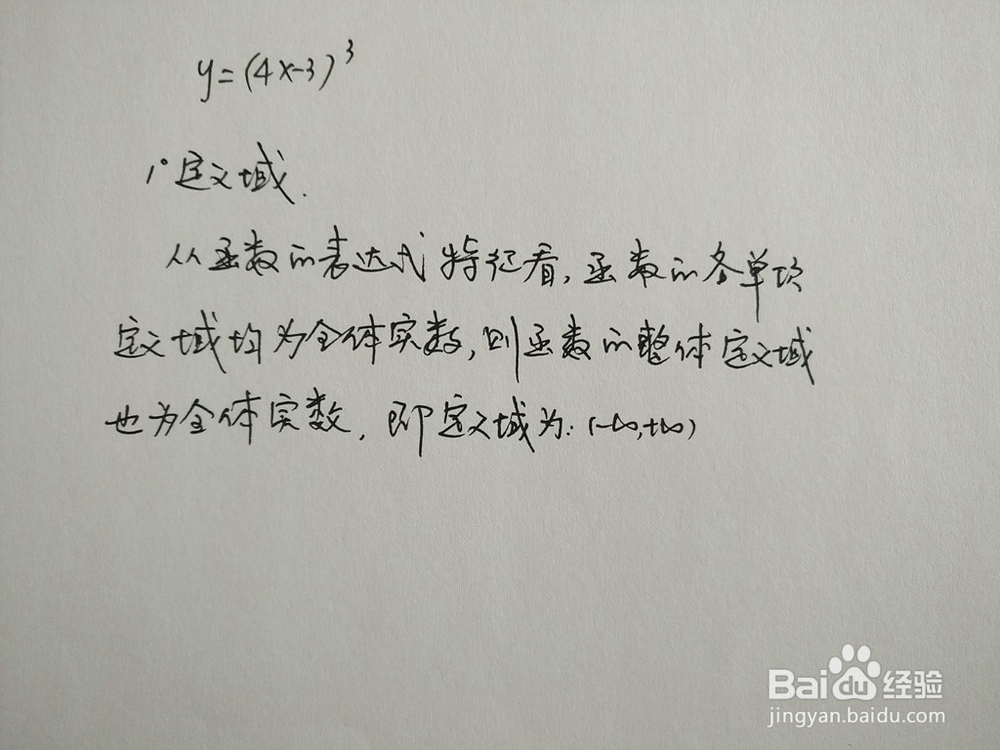 y=(4x-3)³
1°定义域.
从函数的表达式特征看,函数的各单项
定义域均为全体实数,则函数的整体定义域
也为全体实数,即定义域为:(-∞,+∞)
Baidu经验
jingyan.baidu.com